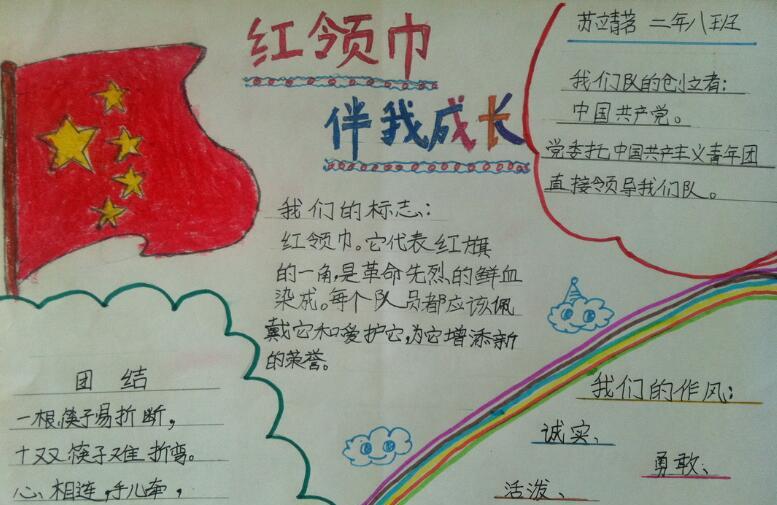 红领巾
伴我成长
苏靖茗 二年八班
我们队的创立者:
中国共产党。
党委托中国共产主义青年团
直接领导我们队。
我们的标志:
红领巾。它代表红旗
的一角,是革命先烈的鲜血
染成。每个队员都应该佩
戴它和爱护它,为它增添新
的荣誉。
团结
一根筷子易折断,
十双筷子难折弯。
心相连,手儿牵,
我们的作风:
诚实、
勇敢、
活泼、